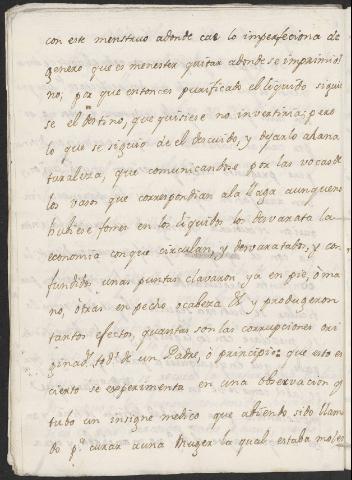 con este menstruo adonde cae lo imperfeciona de
genero que es menester quitar adonde se imprimio;
no, por que entonces purificado el liquido siguie
se el destino, que quisiese no invertiria; pero
lo que se siguio de el descuido, y dejarlo ala na
turaleza, que comunicandose por las vocas de
los vasos que correspondian ala llaga aunque no
hubiese fomes en los liquidos los desvarata la
economia con que circulan, y desvaratado, y con
fundidos unas puntas clavaron ya en pie, ó ma
no, ótras en pecho, ocabeza &c y produgeron
tantos efectos, quantas son las corrupciones ori
ginads. tods. de un Padre, ó principio: que esto es
cierto se experimenta en una observacion q
tubo un insigne medico que abiendo sido llam
do pa. curar auna Muger la qual estaba moles